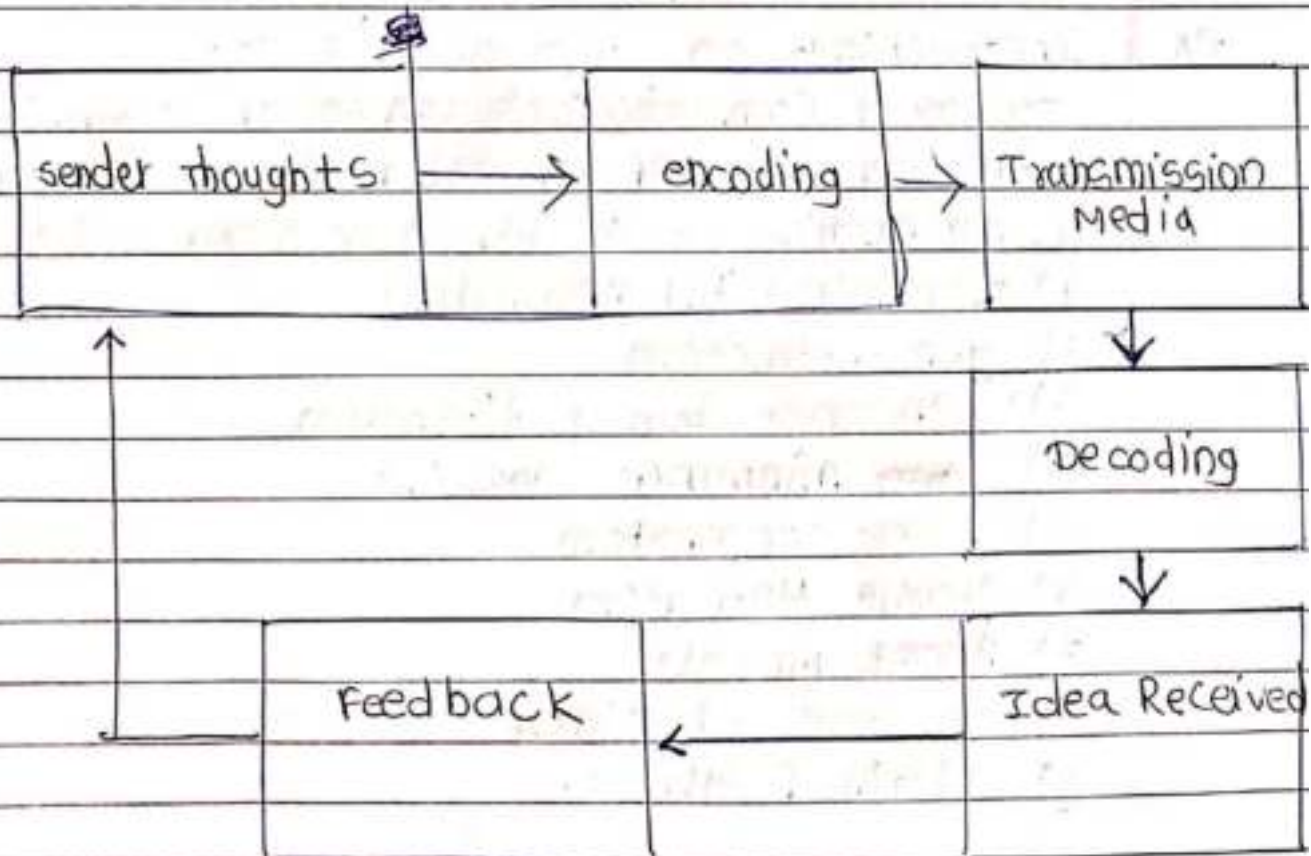 sender thoughts
encoding
Transmission
Media
Decoding
Idea Received
Feedback